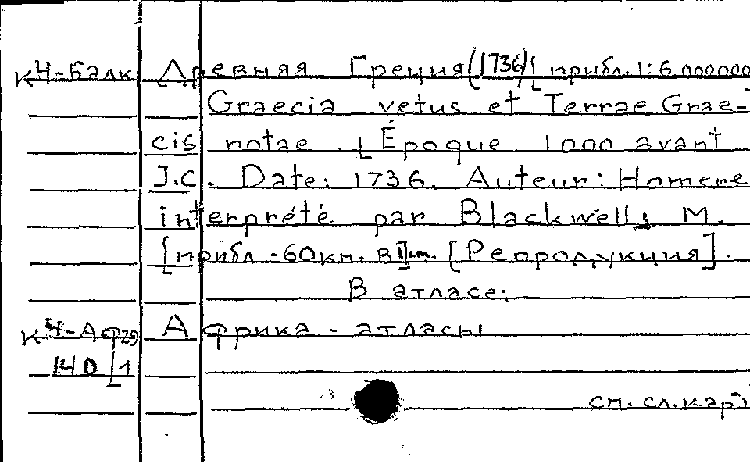 К4-Балк Древняя Греция (1736) [прибл. 1:6.000000
Graecia vetus et Terrae Grae-
cis notae. [Époque 1000 avant
J.C. Date: 1736. Auteur: Homere
interprété par Blackwell, M.
[прибл.-60км. в 1 дм. [Репродукция].
В атласе:
К4-Аф Африка - атласы
140 1
см. сл. карт